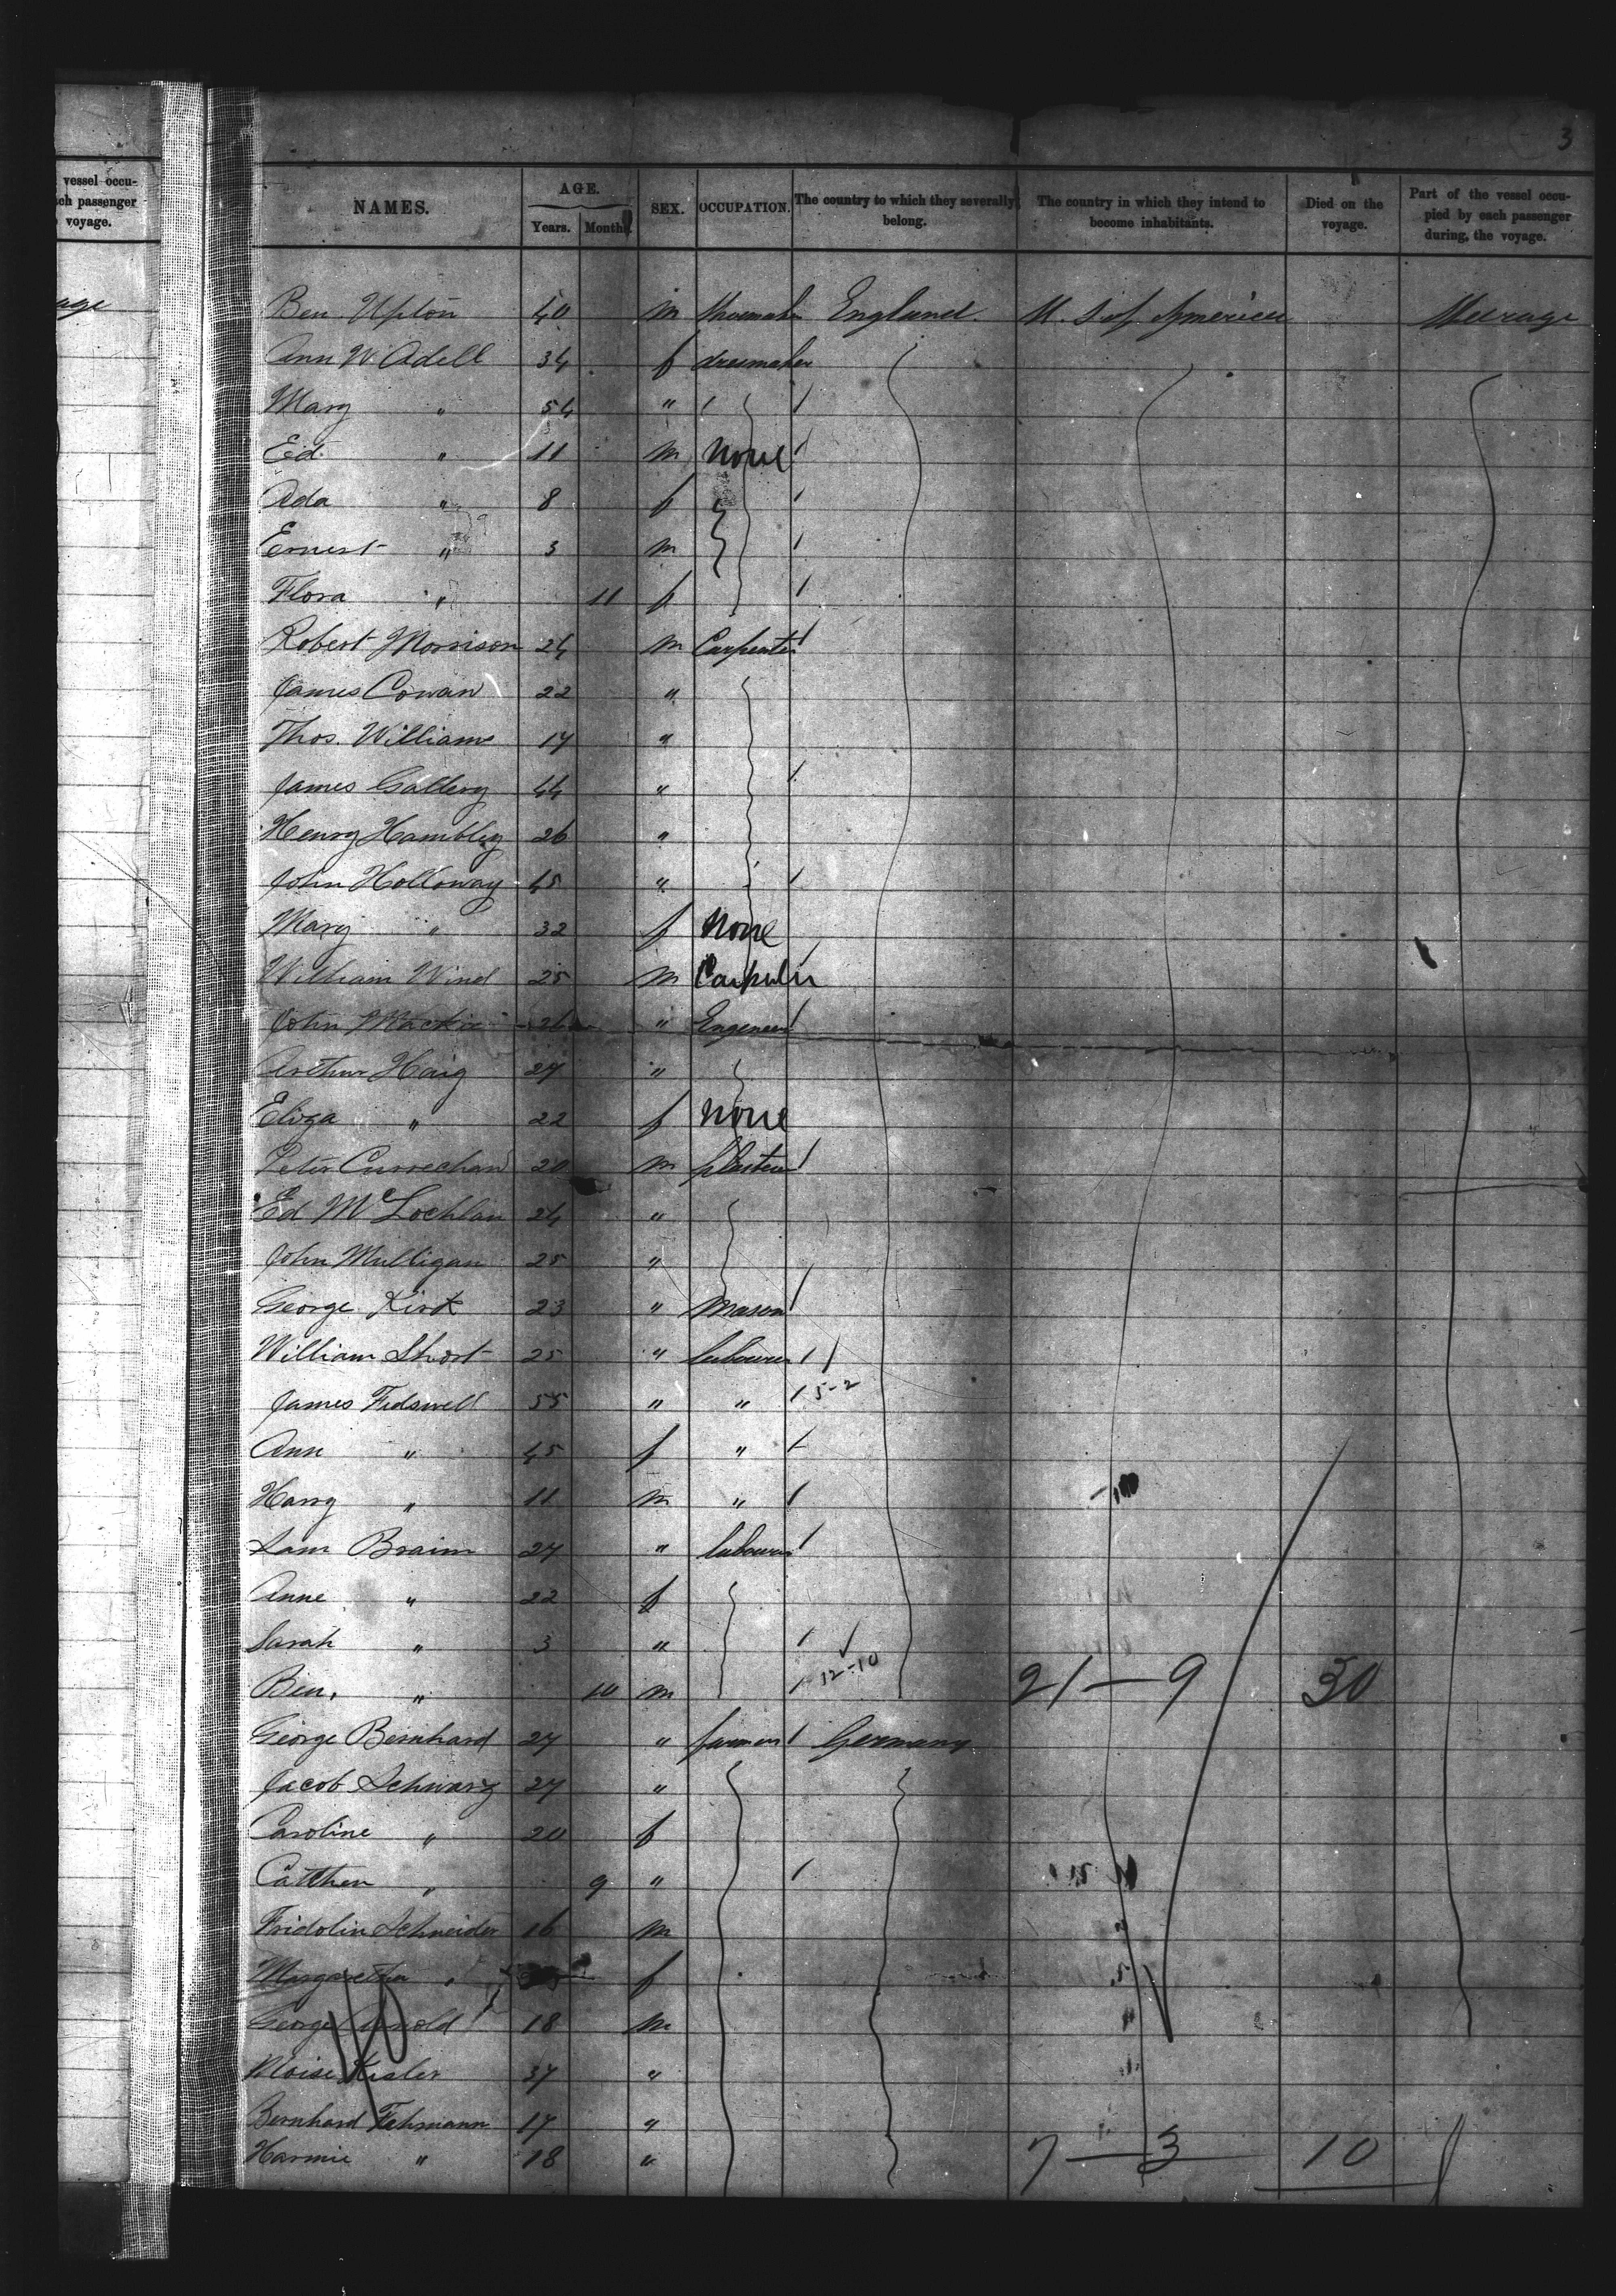 vessel occu-
ch passenger
voyage.
age
3
NAMES.
AGE.
Years. Months.
SEX.
OCCUPATION.
The country to which they severally
belong.
The country in which they intend to
become inhabitants.
Died on the
voyage.
Part of the vessel occu-
pied by each passenger
during, the voyage.
Ben Upton 40 m Shoemaker England. U. S. of America Steerage
Ann W. Adell 34 f dressmaker
Mary " 54 "
Ed. " 11 m None
Ada " 8 f
Ernest " 3 m
Flora " 11 f
Robert Morrison 24 m Carpenter
James Cowan 22 "
Thos. Williams 17 "
James Gallery 44 "
Henry Hambley 26 "
John Holloway 45 "
Mary " 32 f None
William Wind 25 m
John Mackie 26 " Engeneer
Arthur Haig 27 "
Eliza " 22 f None
Peter 20 m plasterer
Ed McLochlan 24 "
John Mulligan 25 "
George Kirk 23 " Mason
William Short 25 " labourer
James 55 " " 5-2
Ann " 45 f "
Harry " 11 m "
Sam Braim 27 " labourer
Anne " 22 f
Sarah " 3 "
Ben, " 10 m 12-10 21-9 30
George Bernhard 27 " farmer Germany
Jacob Schwarz 27 "
Caroline " 20 f
Catthen " 9 "
Fridolin Schneider 16 m
Margaretha " f
George Arnold 18 m
Moise Kesler 37 "
Bernhard Fehmann 17 "
Harmie " 18 " 7-3 10